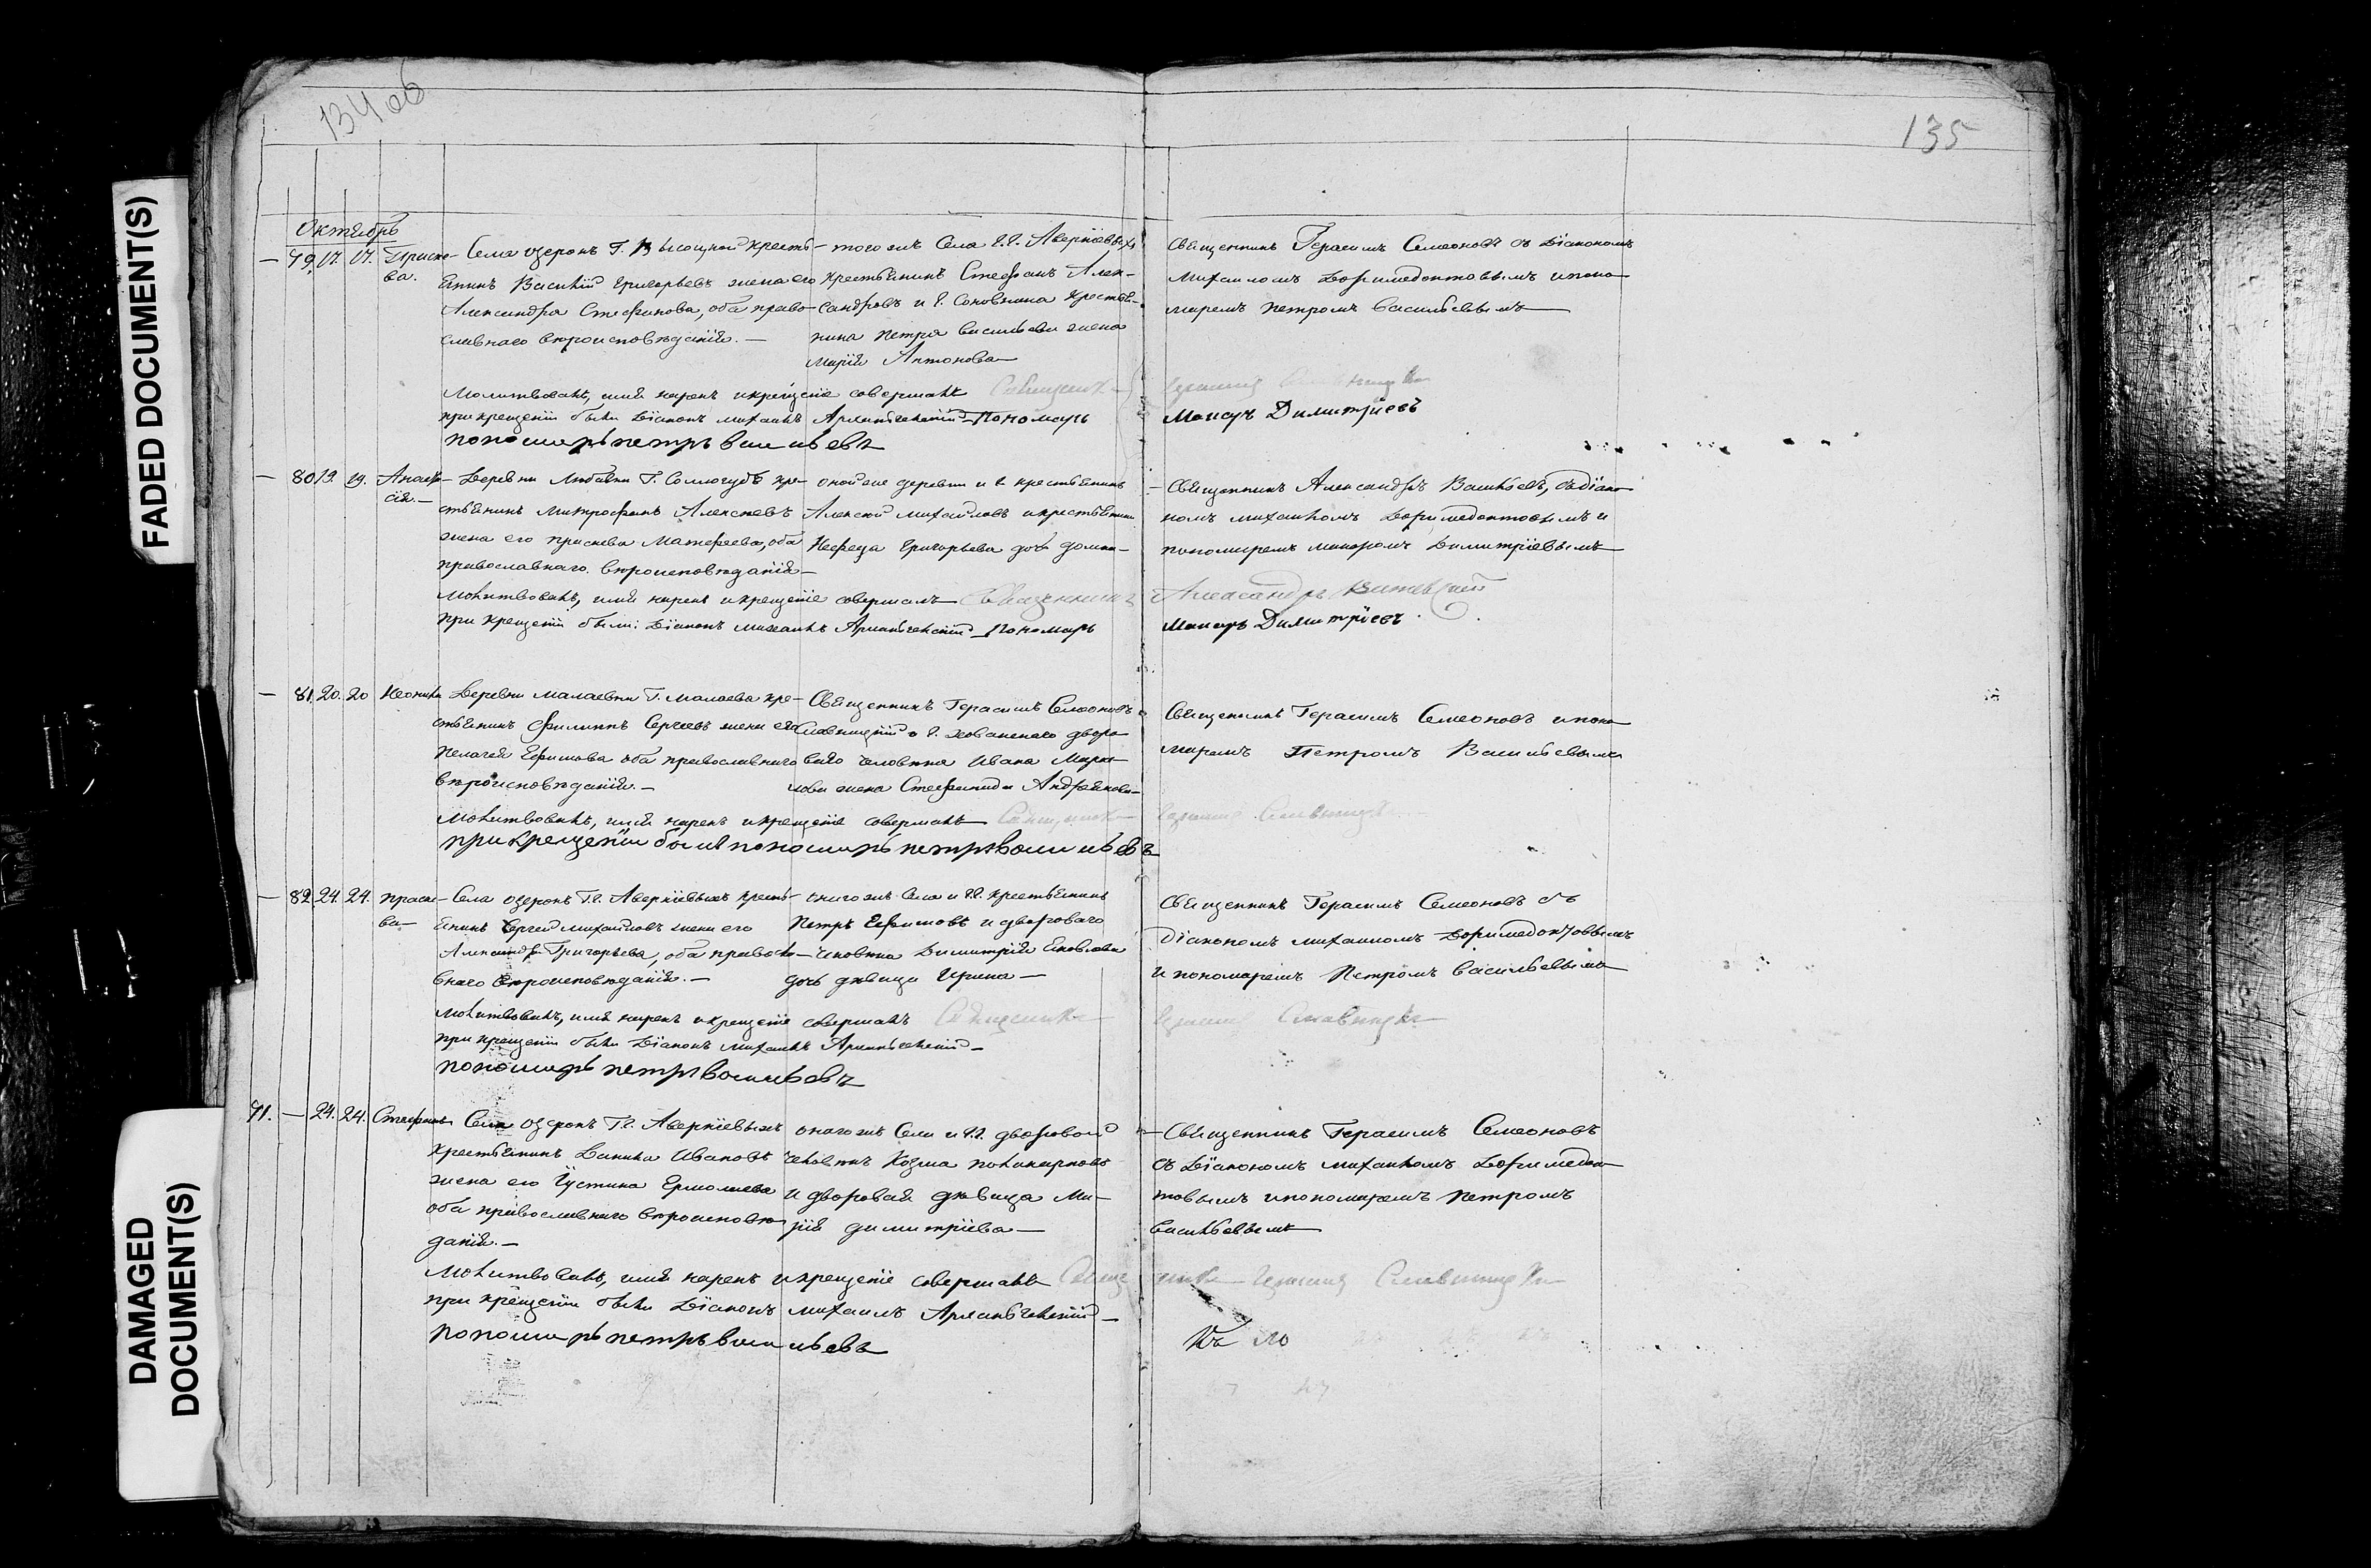 134 об
135
FADED DOCUMENT(S)
DAMAGED
DOCUMENT(S)
Октябрь
— 79. 17. 17. Праске-
ва.
Села озерокъ Г. Высоцкой кресть-
янинъ Василій Григорьевъ жена его
Александра Стефанова, оба право-
славнаго вѣроисповѣданія. —
того жъ Села Г.Г. Аверкіевыхъ
крестьянинъ Стефанъ Алек-
сандровъ и Г. крестья-
нина Петра Васильева жена
Марія Антонова —
Священникъ Герасимъ Симеоновъ съ Діакономъ
Михаиломъ Доримедонтовымъ и поно-
маремъ Петромъ Васильевымъ —
Молитвовалъ, имя нарекъ и крещеніе совершалъ Священникъ
при крещеніи были Діаконъ Михаилъ Архангельскій — Пономарь
Макаръ Димитріевъ
пономарь петръ васильевъ
— 80. 19. 19. Анаста-
сія. —
Деревни Любавки Г. Соллогубъ кре-
стьянинъ Митрофанъ Алексѣевъ
жена его Праскева Матфеева, оба
православнаго вѣроисповѣданія —
оной же деревни и Г. крестьянинъ
Алексѣй Михайловъ и крестьянина
Григорьева дочь Домна —
— Священникъ Александръ Васильевъ, съ діако-
номъ Михаиломъ Доримедонтовымъ и
пономаремъ Макаромъ Димитріевымъ —
Молитвовалъ, имя нарекъ и крещеніе совершалъ Священникъ Александръ
при крещеніи были: Діаконъ Михаилъ Архангельскій — Пономарь
Макаръ Димитріевъ.
— 81. 20. 20 Неонила
Деревни Малаевки Г. Малаева кре-
стьянинъ Филиппъ Сергѣевъ жена его
Пелагея Ефимова оба православнаго
вѣроисповѣданія. —
Священникъ Герасимъ Симеоновъ
Славницкій и Г. Хованскаго дворо-
ваго человѣка Ивана
жена Стефанида Андрѣянова —
Священникъ Герасимъ Симеоновъ и поно-
маремъ Петромъ Васильевымъ
Молитвовалъ, имя нарекъ и крещеніе совершалъ Священникъ Герасимъ Славницкій
при крещеніи былъ пономарь петръ васильевъ
— 82. 24. 24. Праске-
ва —
Села озерокъ Г.Г. Аверкіевыхъ кресть-
янинъ Сергѣй Михайловъ жена его
Александра Григорьева, оба правосла-
внаго вѣроисповѣданія. —
онаго жъ Села и Г.Г. крестьянинъ
Петръ Ефимовъ и двороваго
человѣка Димитрія Яковлева
дочь дѣвица Ирина —
Священникъ Герасимъ Симеоновъ съ
Діакономъ Михаиломъ Доримедонтовымъ
и пономаремъ Петромъ Васильевымъ
Молитвовалъ, имя нарекъ и крещеніе совершалъ Священникъ Герасимъ Славницкій
при крещеніи были Діаконъ Михаилъ Архангельскій —
пономарь петръ васильевъ
71. — 24. 24. Стефанъ
Села озерокъ Г.Г. Аверкіевыхъ
крестьянинъ Данила Ивановъ
жена его Іустина Ермолаева
оба православнаго вѣроисповѣ-
данія. —
онаго жъ Села и Г.Г. дворовой
человѣкъ Козма Поликарповъ
и дворовая дѣвица Ма-
рія Димитріева —
— Священникъ Герасимъ Симеоновъ
съ Діакономъ Михаиломъ Доримедон-
товымъ и пономаремъ Петромъ
Васильевымъ
Молитвовалъ, имя нарекъ и крещеніе совершалъ Священникъ Герасимъ Славницкій
при крещеніи были Діаконъ Михаилъ Архангельскій —
пономарь петръ васильевъ